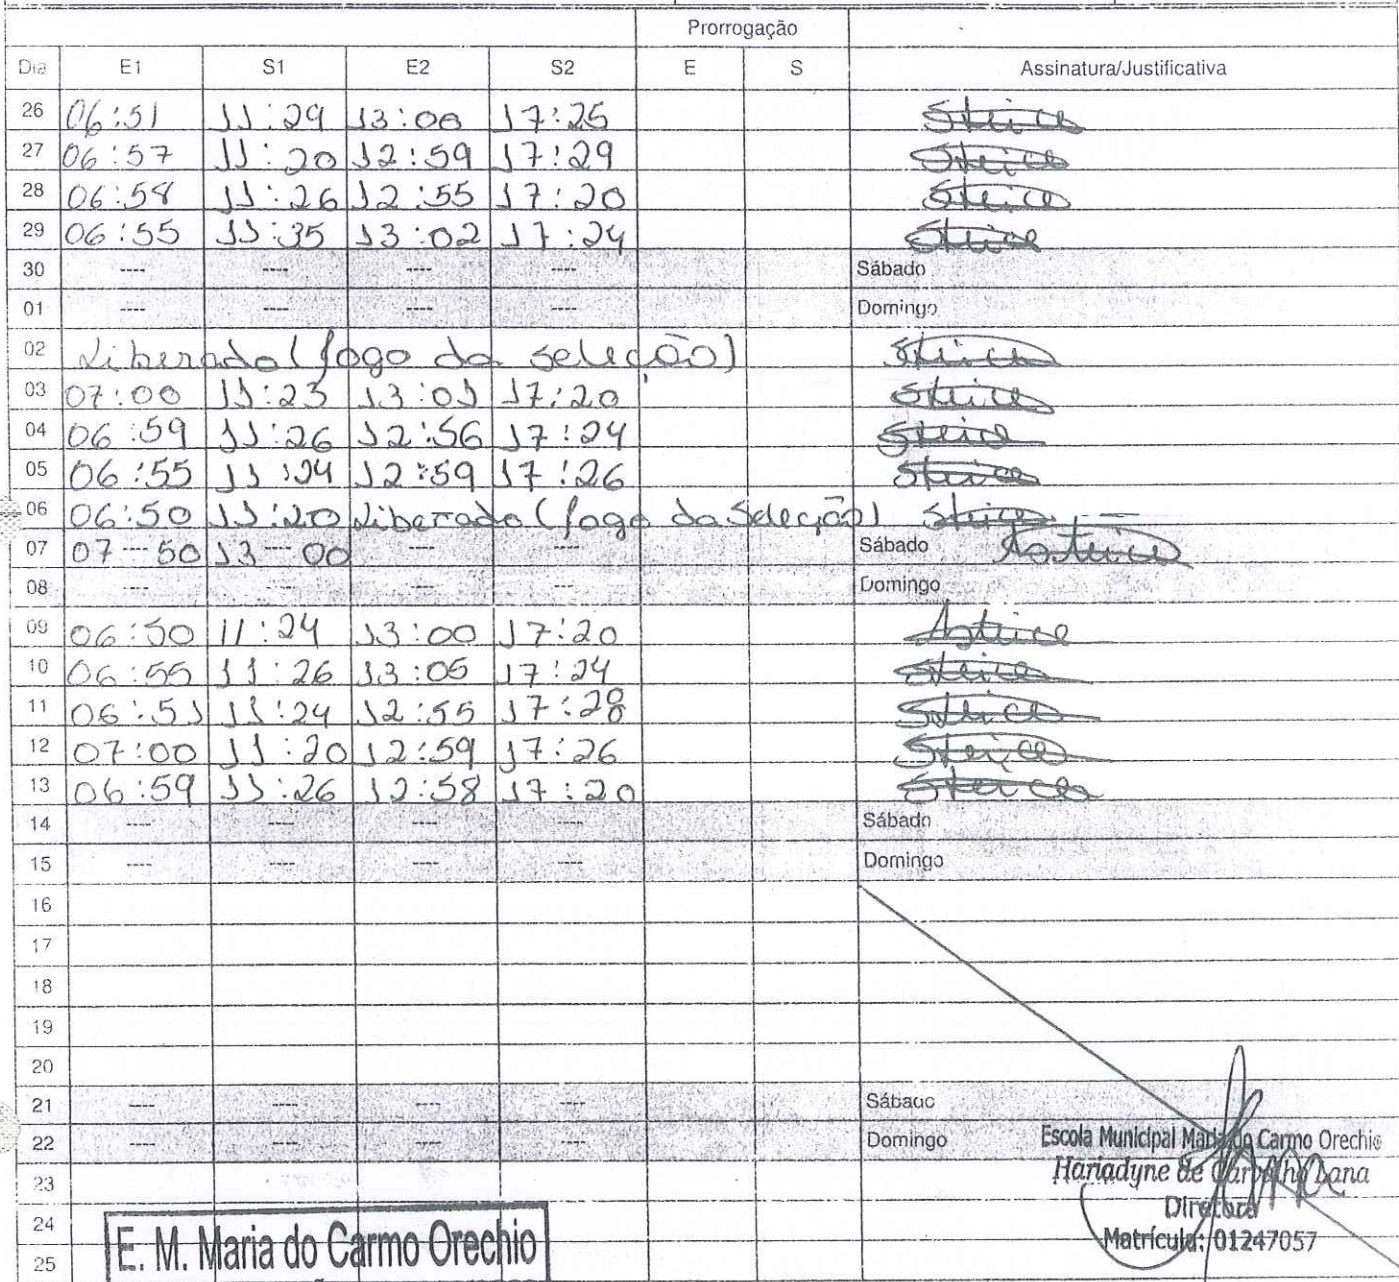 Prorrogação
Dia E1 S1 E2 S2 E S Assinatura/Justificativa
26 06:51 11:29 13:00 17:25
27 06:57 11:20 12:59 17:29
28 06:58 11:26 12:55 17:20
29 06:55 11:35 13:02 17:24
30 ---- ---- ---- ---- Sábado
01 ---- ---- ---- ---- Domingo
02 Liberado (jogo da seleção)
03 07:00 11:23 13:01 17:20
04 06:59 11:26 12:56 17:24
05 06:55 11:24 12:59 17:26
06 06:50 11:20 Liberado (jogo da Seleção)
07 07----50 13----00 ---- ---- Sábado
08 ---- ---- ---- --- Domingo
09 06:50 11:24 13:00 17:20
10 06:55 11:26 13:05 17:24
11 06:51 11:24 12:55 17:28
12 07:00 11:20 12:59 17:26
13 06:59 11:26 12:58 17:20
14 ---- ---- ---- ---- Sábado
15 ---- ---- ---- ---- Domingo
16
17
18
19
20
21 ---- ---- ---- ---- Sábado
22 ---- ---- ---- ---- Domingo
Escola Municipal Maria do Carmo Orechio
Hariadyne de Carvalho Lana
Diretora
Matrícula: 01247057
23
24
25
E. M. Maria do Carmo Orechio